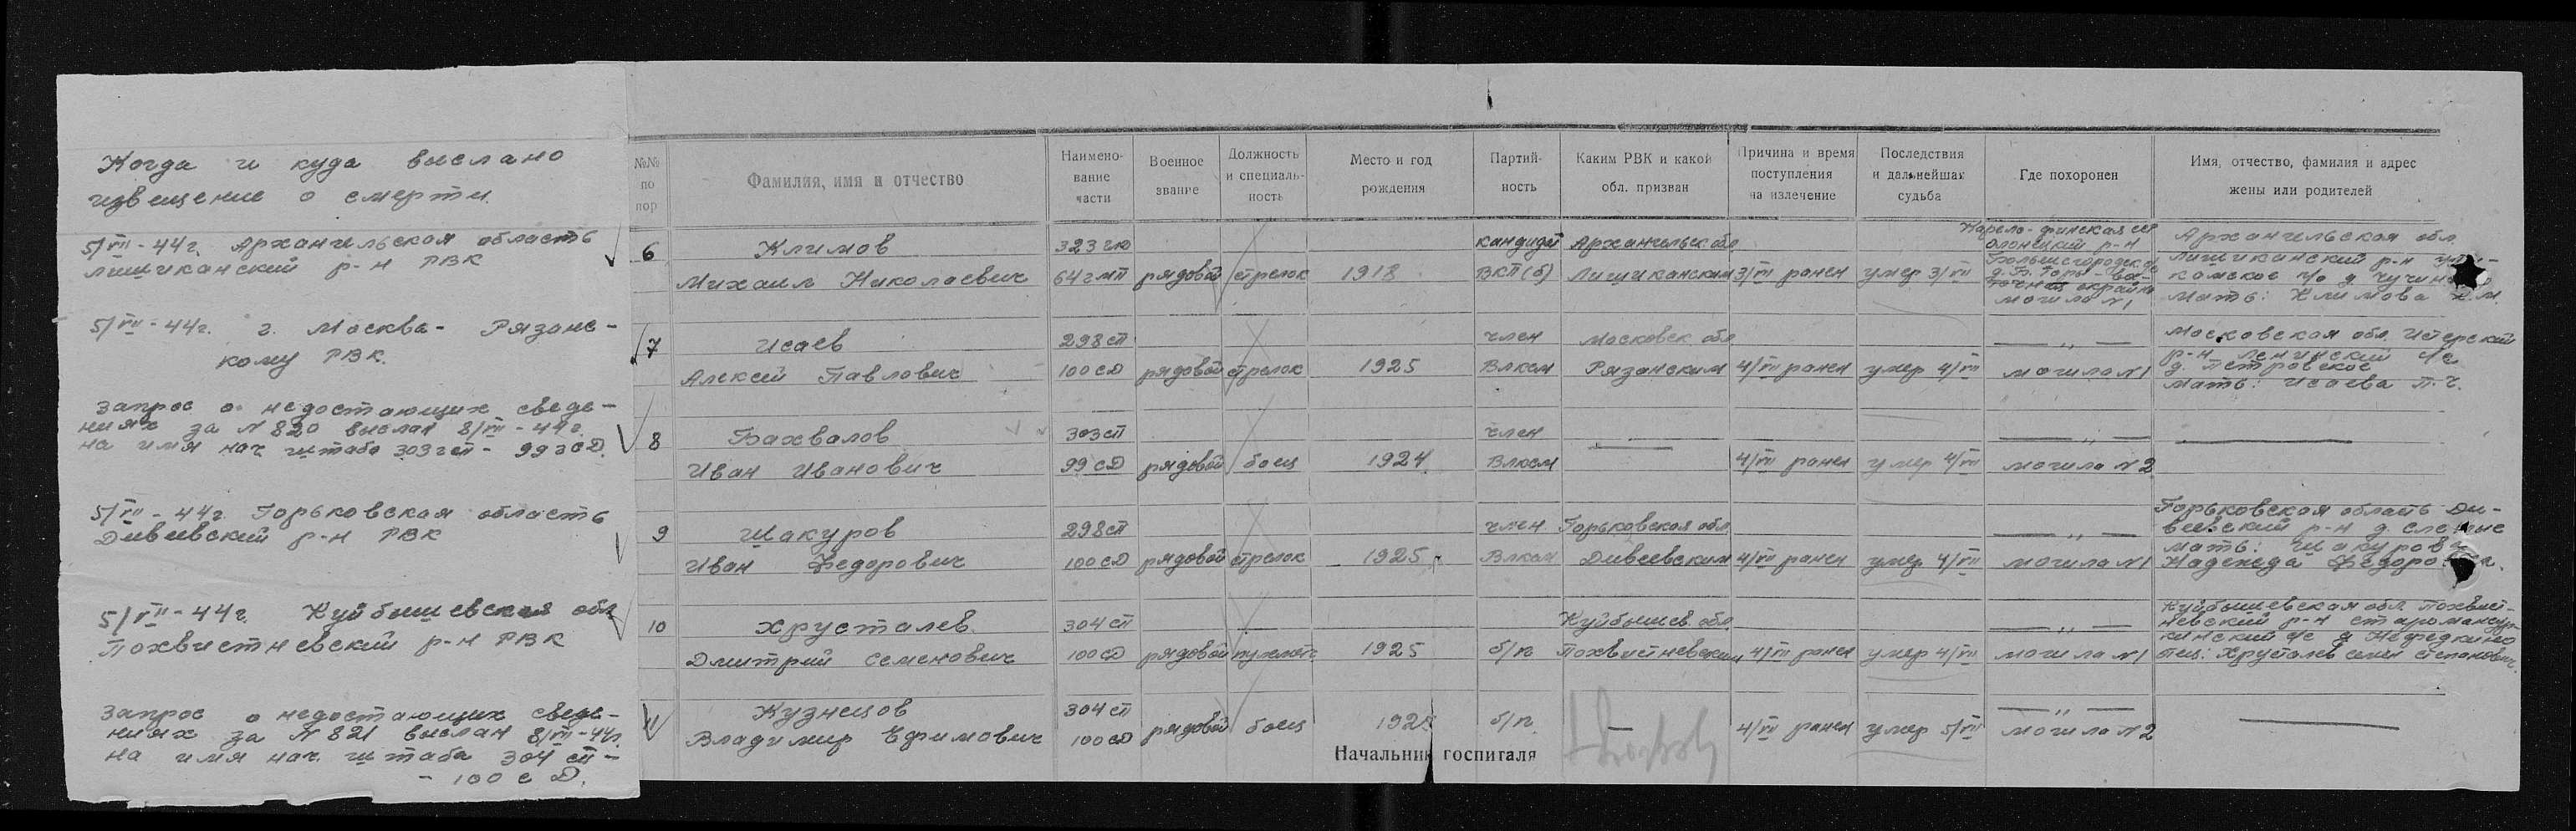 Когда и куда выслано
извещение о смерти.
№№ по пор
Фамилия, имя и отчество
Наименование части
Военное звание
Должность и специальность
Место и год рождения
Партийность
Каким РВК и какой обл. призван
Причина и время поступления на излечение
Последствия и дальнейшая судьба
Где похоронен
Имя, отчество, фамилия и адрес жены или родителей
5/VII-44г. Архангельская область
Лишиканский р-н РВК
6 Климов 323 кандидат Архангельск обл
Михаил Николаевич 64 рядовой стрелок 1918 ВКП(б) Лишиканским 3/VII ранен умер 3/VII
Карело-финская сср
Олонецкий р-н
д. Б. Горы - вос-
точная окрайна
могила №1
Архангельская обл.
Лишиканский р-н
п/о д.
Мать: Климова
5/VII-44г. г. Москва - Рязанс-
кому РВК.
7 Исаев 298 сп член Московск обл
Алексей Павлович 100 сД рядовой стрелок 1925 Влксм Рязанским 4/VII ранен умер 4/VII —„— могила №1
Московская обл. Истерский
р-н Ленинский с/с
д. Петровское
Мать: Исаева П.Г.
Запрос о недостающих сведе-
ниях за №820 выслан 8/VII-44г.
на имя нач штаба 303 сп - 99 сД.
8 Бахвалов 303 сп член —
Иван Иванович 99 сД рядовой боец 1924. Влксм 4/VII ранен умер 4/VII —„— могила №2 —
5/VII-44г. Горьковская область
Дивеевский р-н РВК
9 Шакуров 298 сп член Горьковская обл
Иван Федорович 100 сД рядовой стрелок 1925 Влксм Дивеевским 4/VII ранен умер 4/VII —„— могила №1
Горьковская область Ди-
веевский р-н д.
мать: Шакурова
Надежда
5/VII-44г. Куйбышевская обл
Похвистневский р-н РВК
10 Хрусталев 304 сп Куйбышев обл
Дмитрий Семенович 100 сД рядовой пулеметч 1925 б/п Похвистневским 4/VII ранен умер 4/VII —„— могила №1
Куйбышевская обл. Похвист-
невский р-н Старомансур-
кинский с/с д Нефедкино
отец: Хрусталев Семен Степанович
Запрос о недостающих сведе-
ниях за №821 выслан 8/VII-44г.
на имя нач. штаба 304 сп -
- 100 сД.
11 Кузнецов 304 сп
Владимир Ефимович 100 сД рядовой боец б/п — 4/VII ранен умер 5/VII —„— могила №2 —
Начальник госпиталя